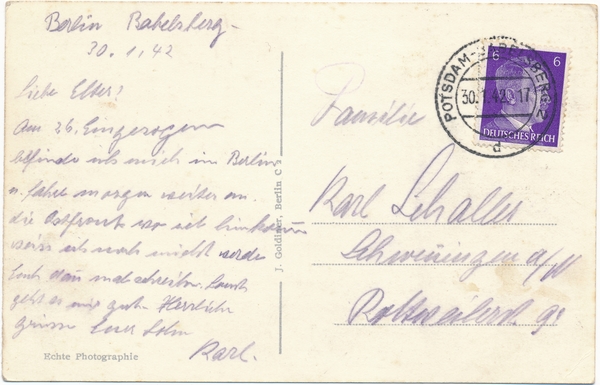 Berlin Babelsberg-
30.1.42
Liebe Elter!
Am 26. Eingezogen
befinde ich mich in Berlin
u. fahre morgen weiter an
die Ostfront wo ich hinkomme
weiss ich noch nicht werde
Euch dan mal schreiben. Sonst
geht es mir gut. Herzliche
grüsse Euer Sohn
Karl.
Echte Photographie
J. Goldiner, Berlin C
POTSDAM-BABELSBERG 2
30.1.42. 17
d
6 6
DEUTSCHES REICH
Familie
Karl Schaller
Schwenningen a/N
Rottweilerstr 93